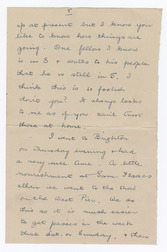 up at present but I know you
like to know how things are
going. One fellow I know
is in 3 & writes to his people
that he is still in 5. I
think this is so foolish
dont you? It always looks
to me as if you can't trust
those at home.
I went to Brighton
on Thursday evening & had
a very nice time. A little
nourishment at Sam Isaacs
when we went to the
on the West Pier. We do
this as it is much easier
to get passes in the week
than Sat. or Sunday. & there